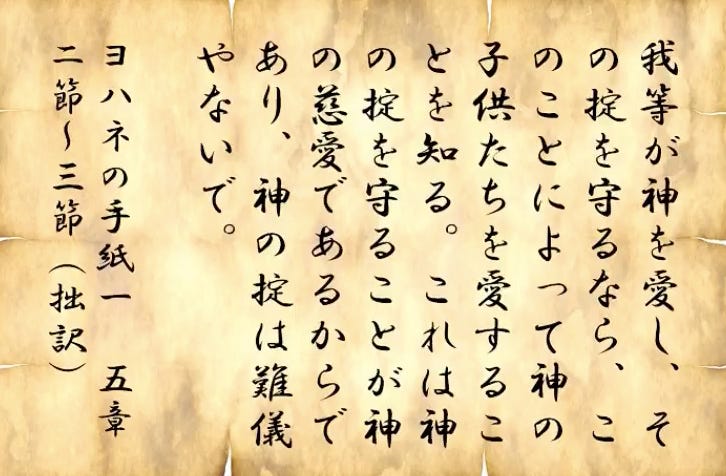 我等が神を愛し、そ
の掟を守るなら、こ
のことによって神の
子供たちを愛するこ
とを知る。これは神
の掟を守ることが神
の慈愛であるからで
あり、神の掟は難儀
やないで。
ヨハネの手紙一　五章
二節〜三節（拙訳）